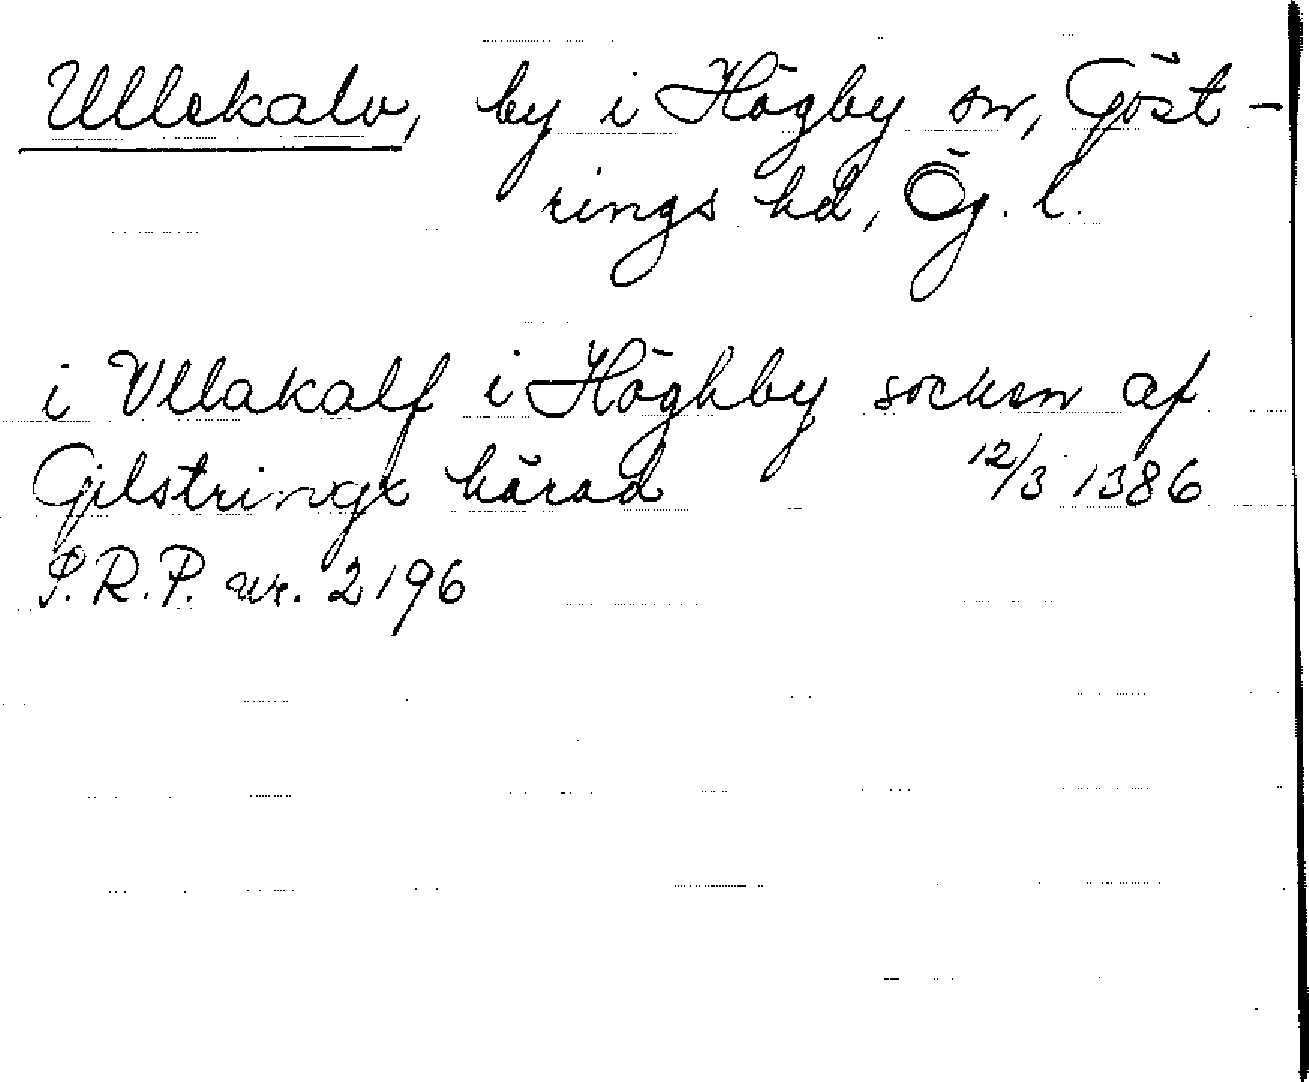 Ullekalv, by i Högby sn, Göst-
rings hd, Ög. l.
i Vllakalf i Höghby socken af
Gilstringx härad 12/3 1386
S.R.P. nr. 2196